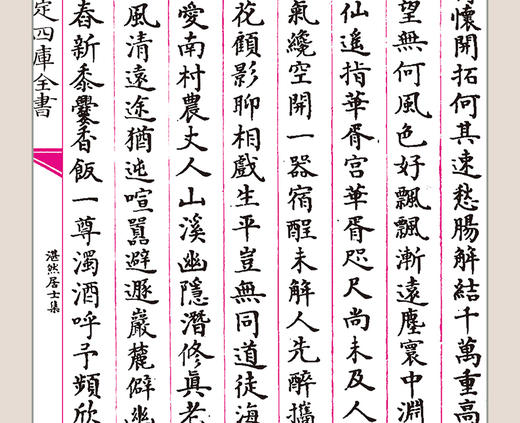 懷開拓何其速愁腸解結千萬重高
望無何風色好飄飄漸逺塵寰中淵
仙遙指華胥宮華胥咫尺尚未及人
氣纔空開一器宿酲未解人先醉攜
花顧影聊相戲生平豈無同道徒海
愛南村農丈人山溪幽隱潛修真老
風清逺途猶迆喧囂避遯巖麓僻幽
舂新黍爨香飯一尊濁酒呼予頻欣
定四庫全書
湛然居士集